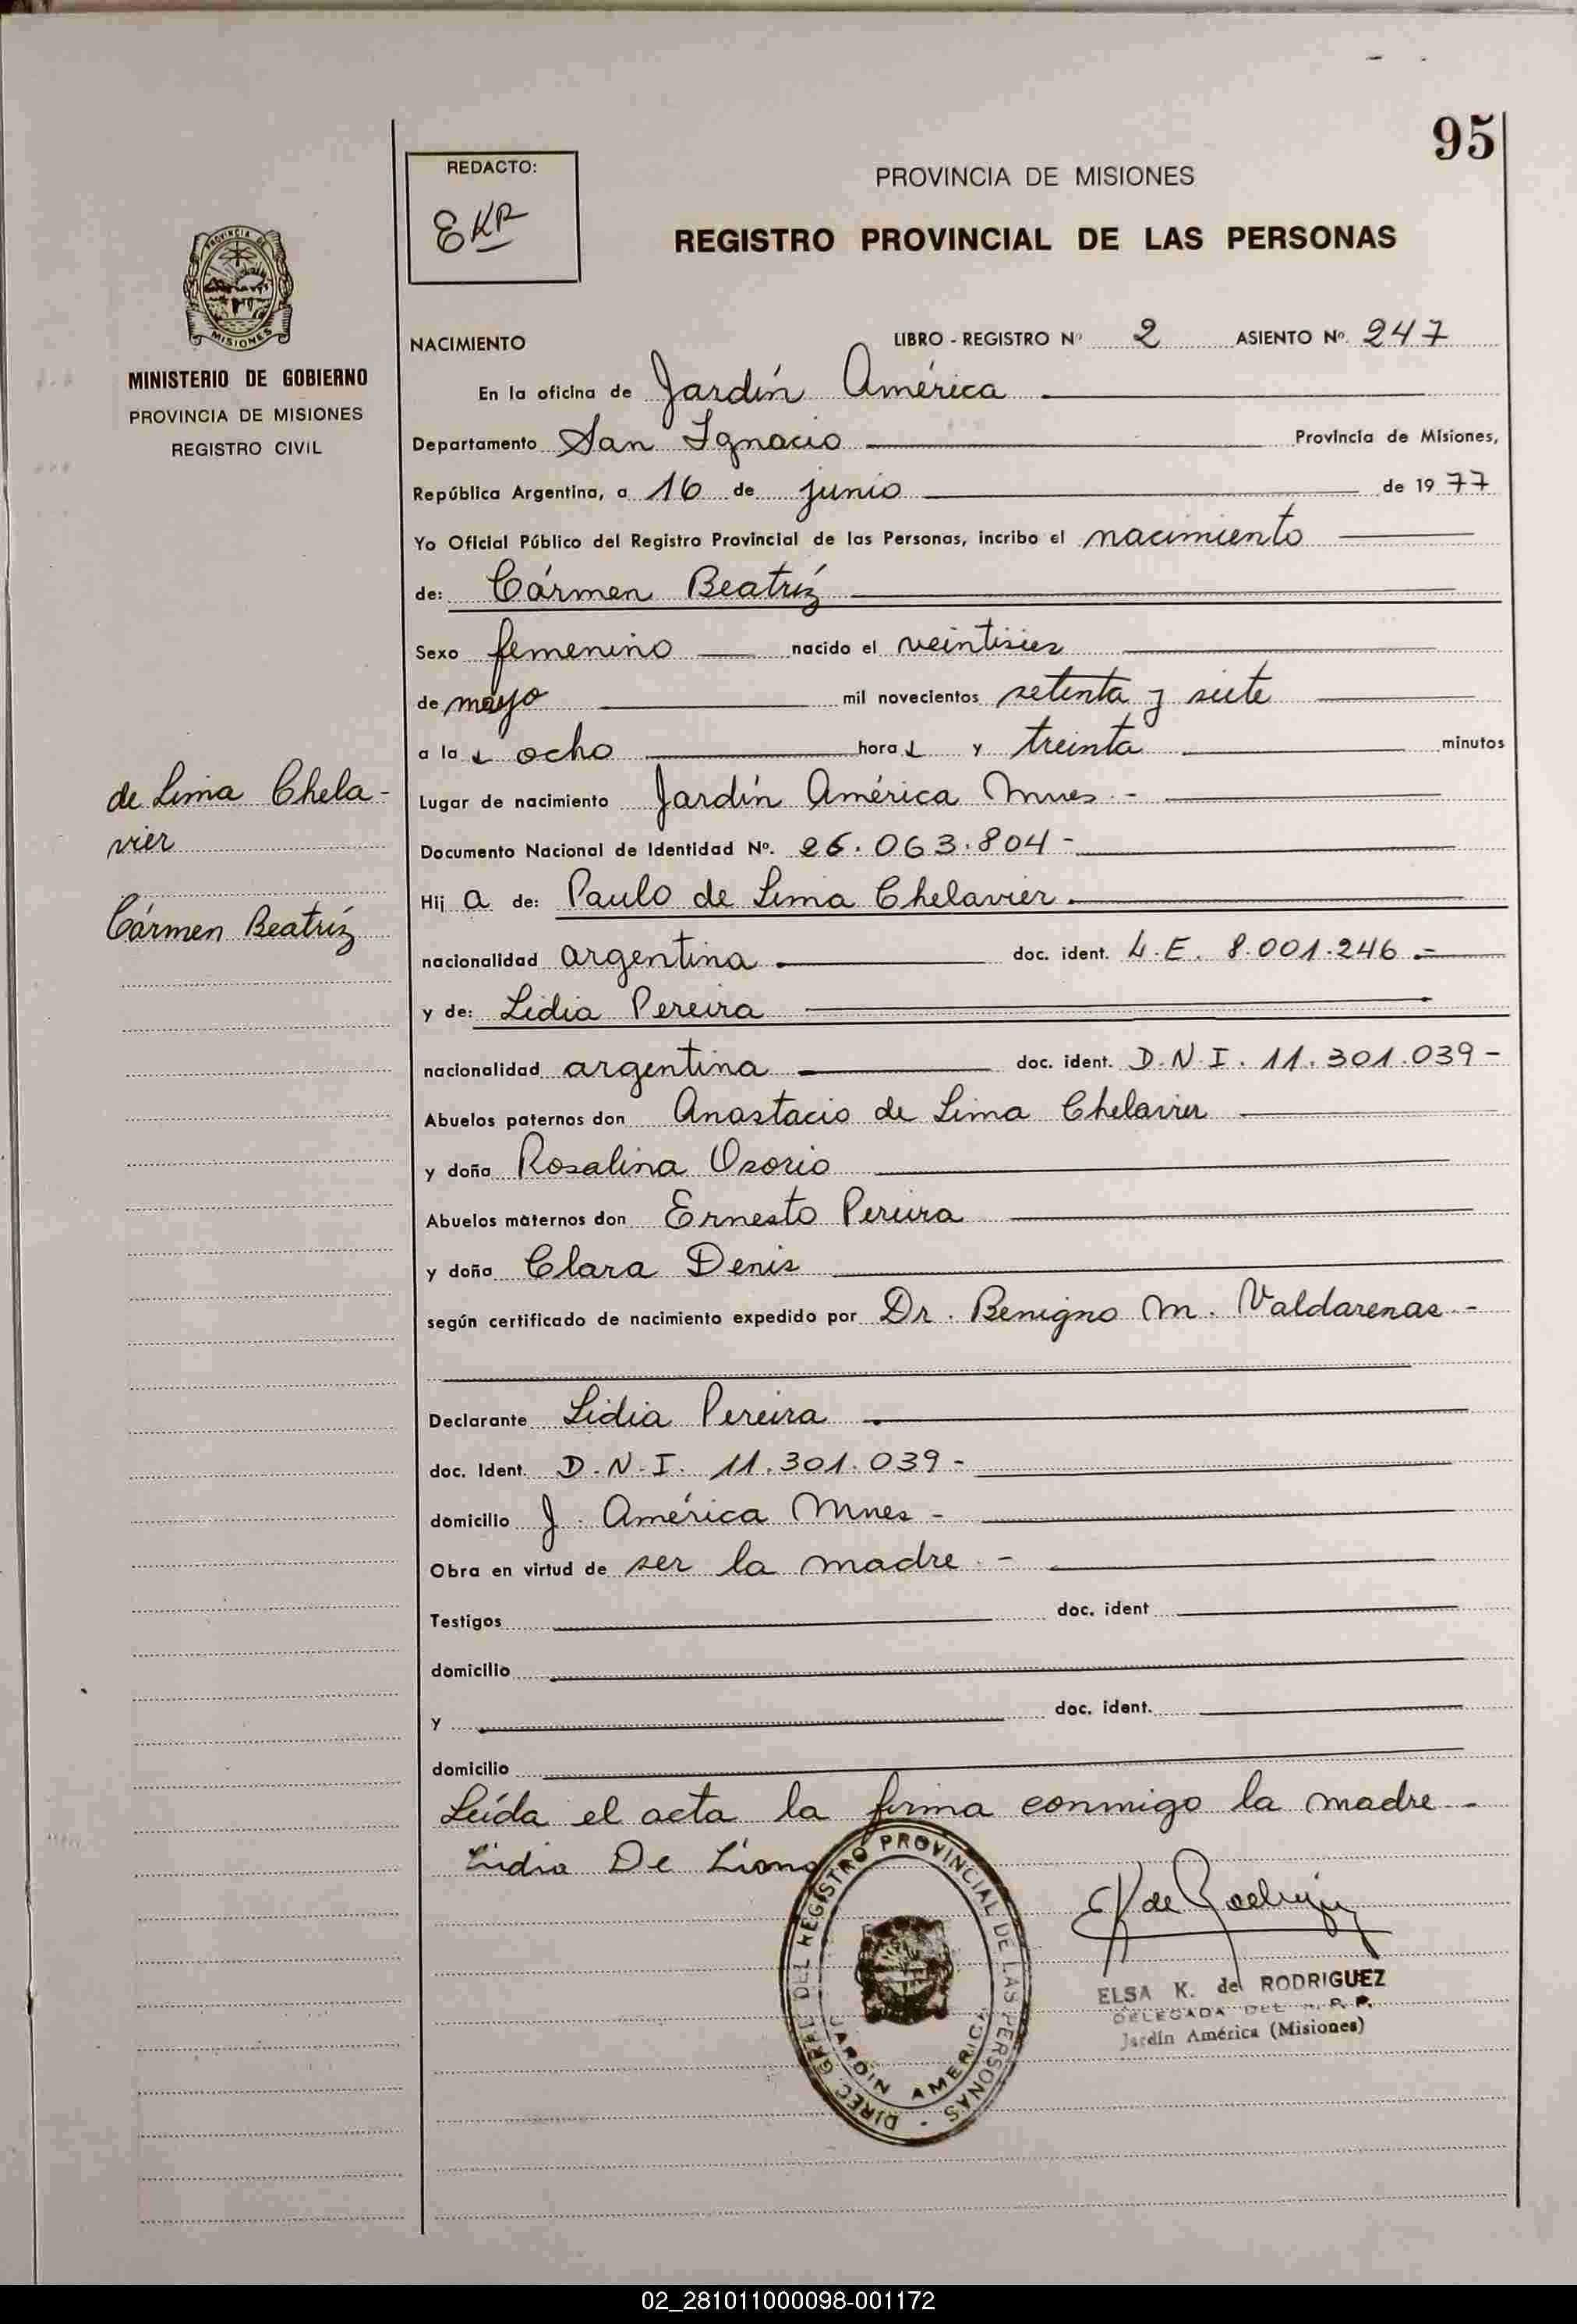 95
REDACTO:
EKR
PROVINCIA DE MISIONES
REGISTRO PROVINCIAL DE LAS PERSONAS
PROVINCIA DE
MISIONES
MINISTERIO DE GOBIERNO
PROVINCIA DE MISIONES
REGISTRO CIVIL
NACIMIENTO LIBRO - REGISTRO Nº 2 ASIENTO Nº 247
En la oficina de Jardín América
Departamento San Ignacio Provincia de Misiones,
República Argentina, a 16 de junio de 1977
Yo Oficial Público del Registro Provincial de las Personas, incribo el nacimiento
de: Cármen Beatríz
Sexo femenino nacido el veintisies
de mayo mil novecientos setenta y siete
a las ocho horas y treinta minutos
Lugar de nacimiento Jardín América Mnes -
Documento Nacional de Identidad Nº. 26.063.804-
de Lima Chela-
vier
Cármen Beatríz
Hija de: Paulo de Lima Chelavier.
nacionalidad argentina doc. ident. L.E. 8.001.246.=
y de: Lidia Pereira
nacionalidad argentina doc. ident. D.N.I. 11.301.039-
Abuelos paternos don Anastacio de Lima Chelavier
y doña Rosalina Osorio
Abuelos maternos don Ernesto Pereira
y doña Clara Denis
según certificado de nacimiento expedido por Dr. Benigno M. Valdarenas -
Declarante Lidia Pereira
doc. Ident. D.N.I. 11.301.039-
domicilio J. América Mnes -
Obra en virtud de ser la madre. -
Testigos doc. ident
domicilio
y doc. ident.
domicilio
Leída el acta la firma conmigo la madre -
Lidia De Lima
EK de Rodriguez
DIREC. GRAL. DEL REGISTRO PROVINCIAL DE LAS PERSONAS -
JARDIN AMERICA
ELSA K. de RODRIGUEZ
DELEGADA DEL R. P. P.
Jardín América (Misiones)
02_281011000098-001172